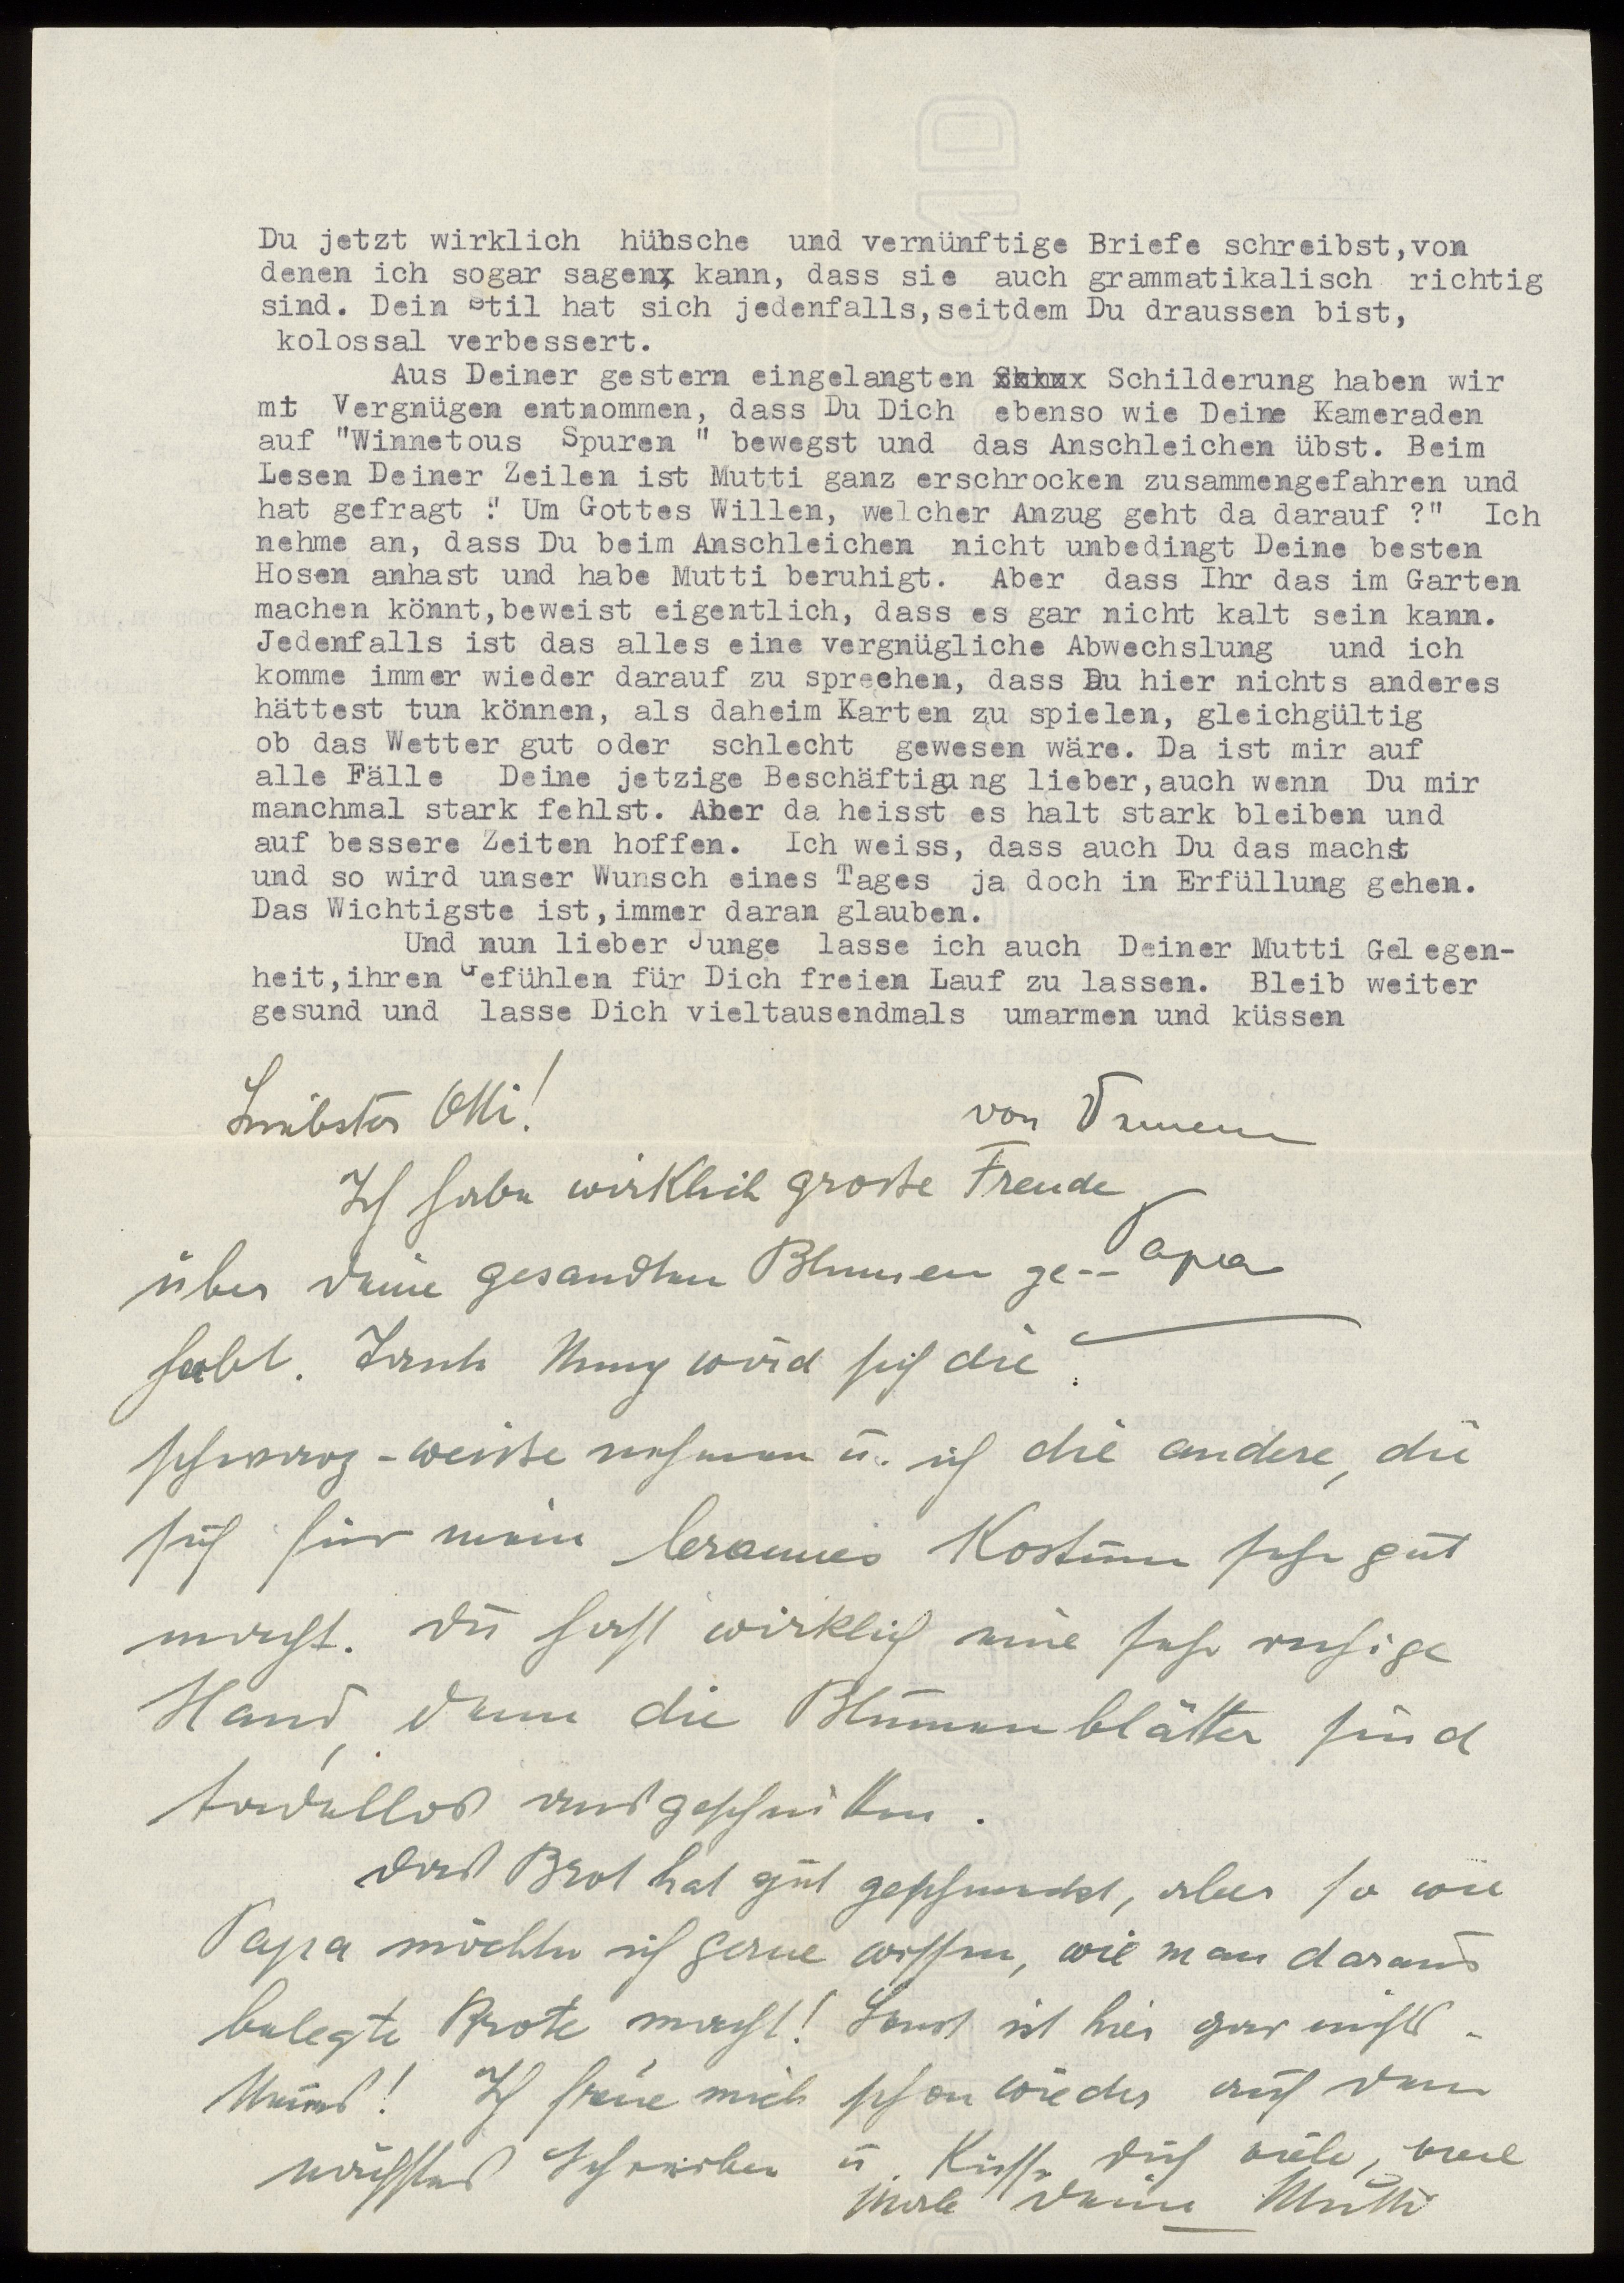 Du jetzt wirklich hübsche und vernünftige Briefe schreibst,von
denen ich sogar sagenx kann, dass sie auch grammatikalisch richtig
sind. Dein Stil hat sich jedenfalls,seitdem Du draussen bist,
kolossal verbessert.
Aus Deiner gestern eingelangten Schilderung haben wir
mt Vergnügen entnommen, dass Du Dich ebenso wie Deine Kameraden
auf "Winnetous Spuren " bewegst und das Anschleichen übst. Beim
Lesen Deiner Zeilen ist Mutti ganz erschrocken zusammengefahren und
hat gefragt :" Um Gottes Willen, welcher Anzug geht da darauf ?" Ich
nehme an, dass Du beim Anschleichen nicht unbedingt Deine besten
Hosen anhast und habe Mutti beruhigt. Aber dass Ihr das im Garten
machen könnt,beweist eigentlich, dass es gar nicht kalt sein kann.
Jedenfalls ist das alles eine vergnügliche Abwechslung und ich
komme immer wieder darauf zu sprechen, dass Du hier nichts anderes
hättest tun können, als daheim Karten zu spielen, gleichgültig
ob das Wetter gut oder schlecht gewesen wäre. Da ist mir auf
alle Fälle Deine jetzige Beschäftigung lieber,auch wenn Du mir
manchmal stark fehlst. Aber da heisst es halt stark bleiben und
auf bessere Zeiten hoffen. Ich weiss, dass auch Du das machst
und so wird unser Wunsch eines Tages ja doch in Erfüllung gehen.
Das Wichtigste ist,immer daran glauben.
Und nun lieber Junge lasse ich auch Deiner Mutti Gelegen-
heit,ihren Gefühlen für Dich freien Lauf zu lassen. Bleib weiter
gesund und lasse Dich vieltausendmals umarmen und küssen
von Deinem
Papa
Liebster Otti!
Ich habe wirklich grosse Freude
über Deine gesandten Blumen ge--
habt. Tante wird sich die
schwarz-weisse nehmen u. ich die andere, die
sich für mein braunes Kostüm sehr gut
macht. Du hast wirklich eine sehr ruhige
Hand, denn die Blumenblätter sind
tadellos ausgeschnitten.
Das Brot hat gut geschmeckt, aber so wie
Papa möchte ich gerne wissen, wie man daraus
belegte Brote macht! Sonst ist hier gar nichts
Neues! Ich freue mich schon wieder auf Dein
nächstes Schreiben u. küsse Dich viele, viele
Male Deine Mutti